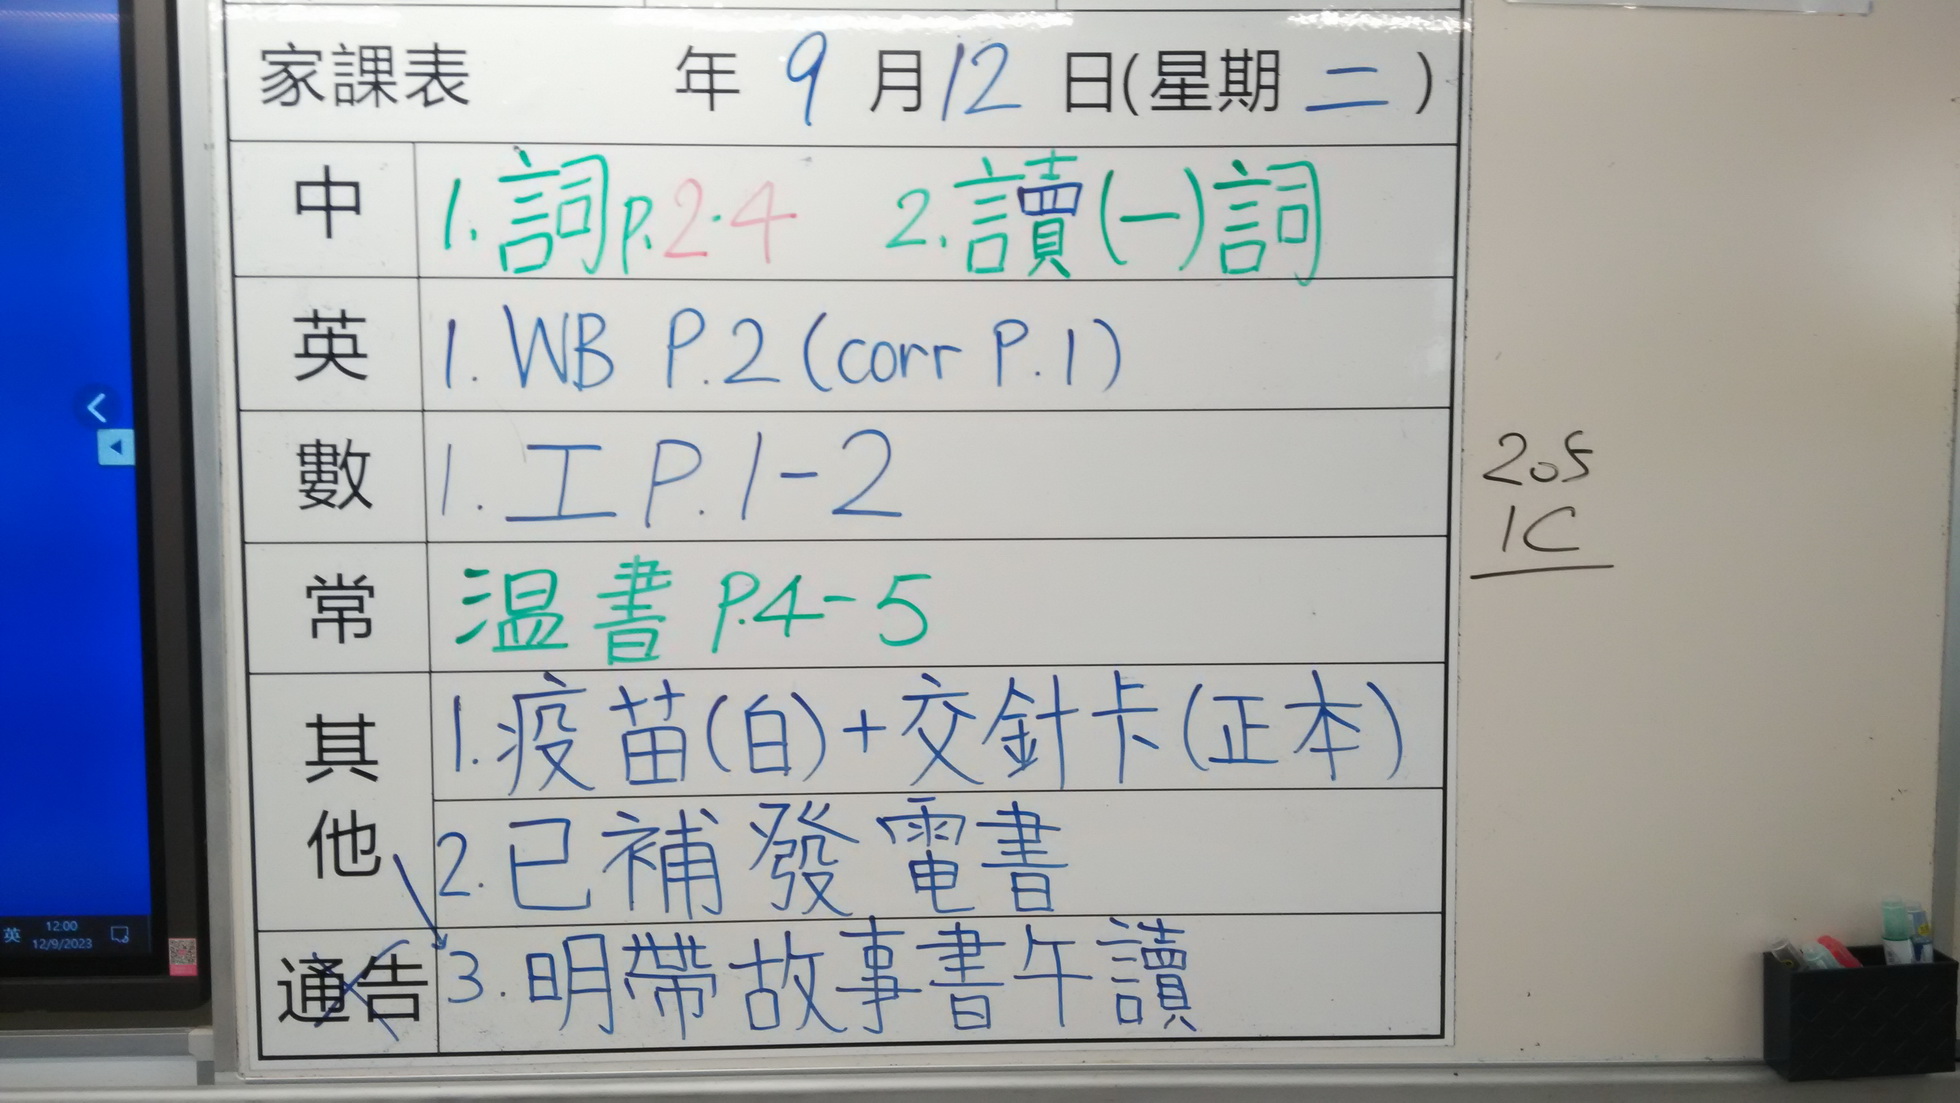 家課表 年 9 月 12 日(星期 二 )
中 1. 詞 p. 2.4 2. 讀 (一) 詞
英 1. WB P.2 (corr P.1)
數 1. 工 P.1-2
常 温書 P.4-5
其他 1. 疫苗(白)+交針卡(正本)
2. 已補發電書
通告 3. 明帶故事書午讀
205
1C
英 12:00
12/9/2023